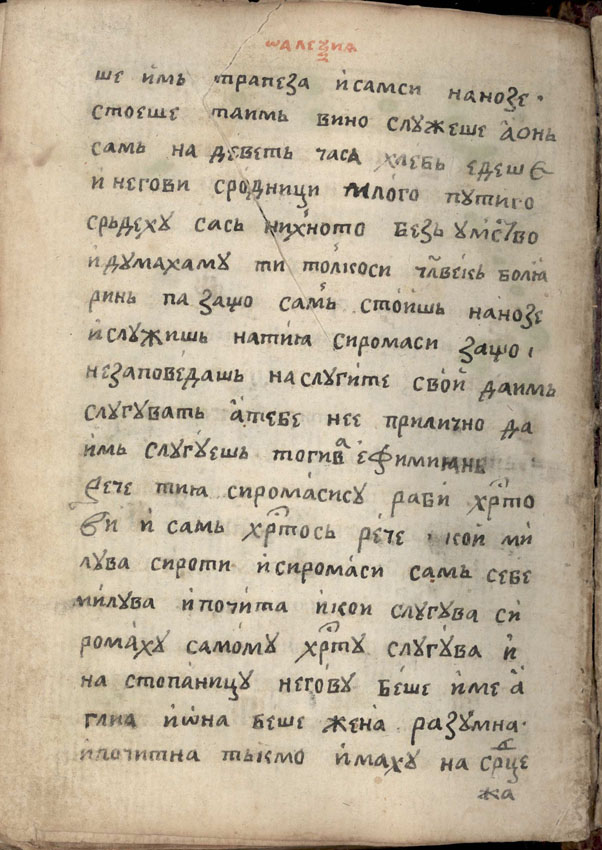 ѡалеѯиꙗ
ше и҆мь трапеза и҆самси нанозе·
стоеше таимь вино служеше а҆ѡнь
самь на деветь часа хлебь едеше
и҆ негови сродници млого путиго
срьдеху сась нихното безь умство
и҆думахаму ти толкоси чл҃векь болꙗ
ринь па защо самь стои҆шь нанозе
и҆служишь натиꙗ сиромаси защо
незаповедашь наслугите свои҆ даимь
слугувать а҆тебе нее прилично да
и҆мь слугуешь тогива ефимиꙗнь
рече тиꙗ сиромасису раби хрⷭ҇то
ви и҆ самь хрⷭ҇тось рече кои ми
лува сироти и҆сиромаси самь себе
милува и҆почита и҆кои слугува си
ромаху самому хрⷭ҇ту слугува и҆
на стопаницу негову беше и҆ме а҆
глиа и҆ѡна беше жена разумна·
и҆почитна тькмо и҆маху на срⷣце
жа